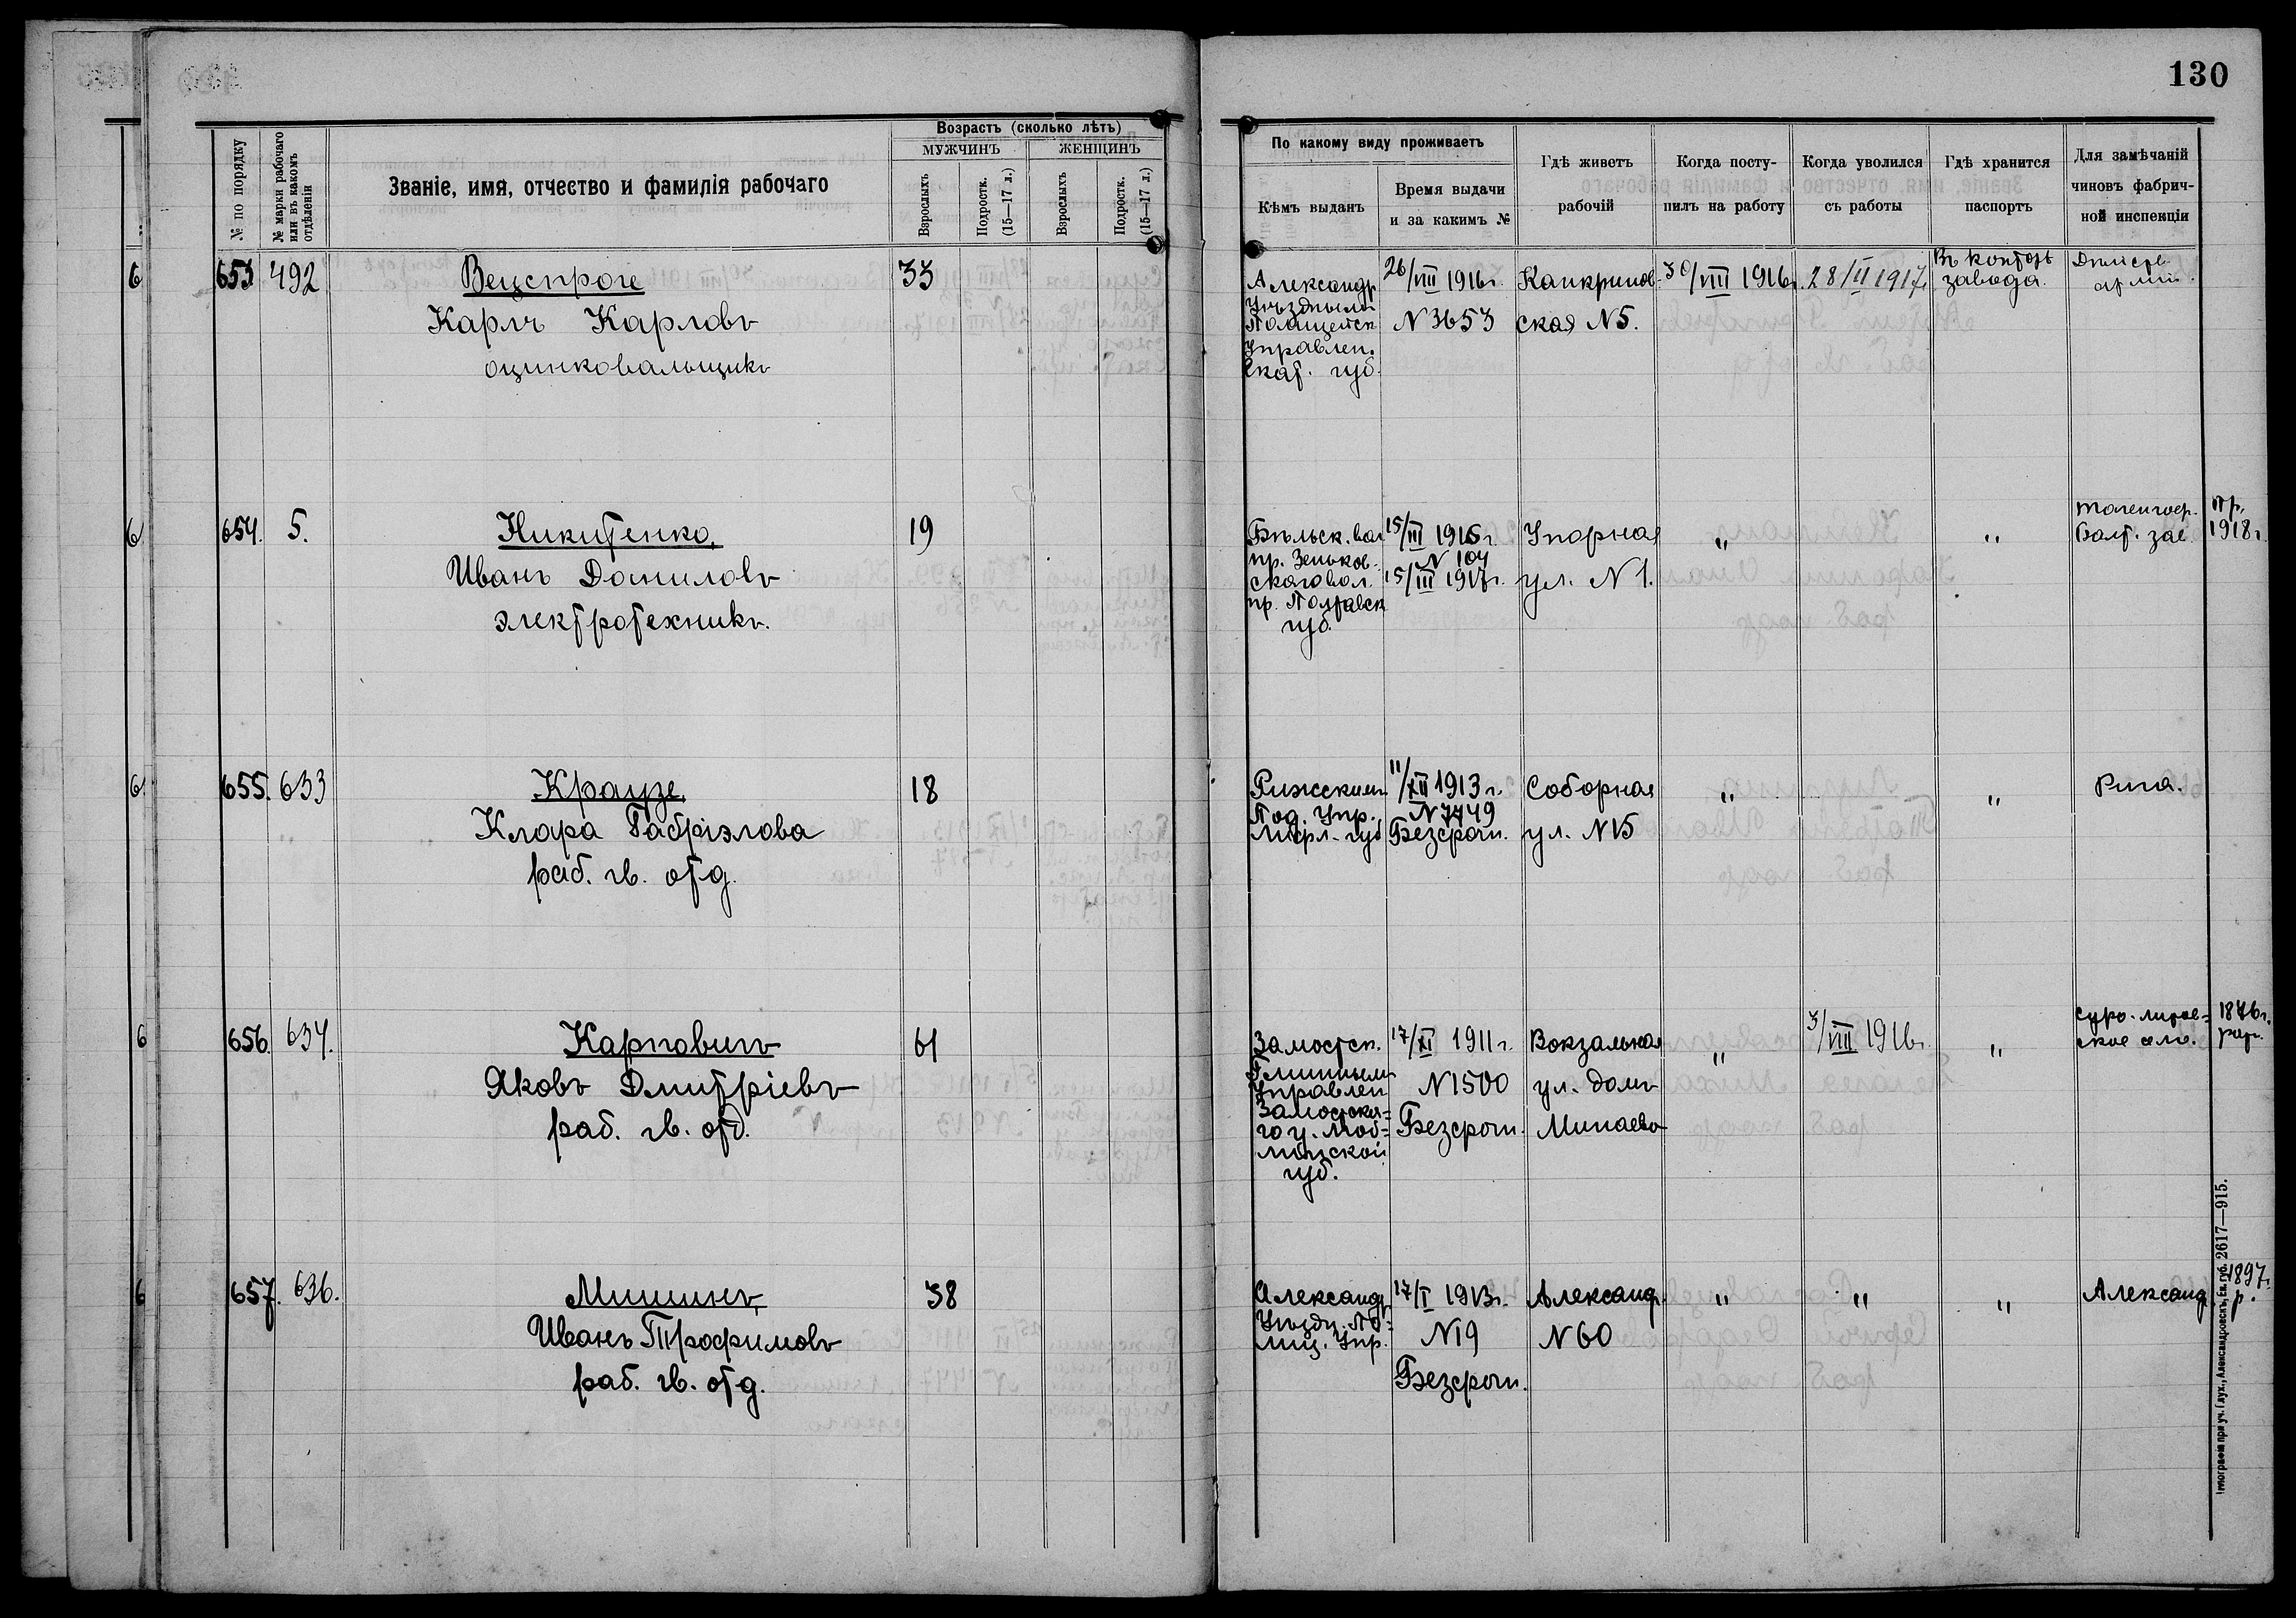 130
№ по порядку
№ марки рабочаго или въ какомъ отдѣленіи
Званіе, имя, отчество и фамилія рабочаго
Возрастъ (сколько лѣтъ)
МУЖЧИНЪ
ЖЕНЩИНЪ
Взрослыхъ
Подростк. (15—17 л.)
Взрослыхъ
Подростк. (15—17 л.)
По какому виду проживаетъ
Кѣмъ выданъ
Время выдачи
и за какимъ №
Гдѣ живетъ
рабочій
Когда посту-
пилъ на работу
Когда уволился
съ работы
Гдѣ хранится
паспортъ
Для замѣчаній
чиновъ фабрич-
ной инспекціи
6 653 492 Вецспроге 33
Карлъ Карловъ
оцинковальщикъ
Александр
Уѣзднымъ
Полицейск
Управлен.
Екат. губ.
26/VIII 1916 г.
N 3653
Канкринов-
ская N 5.
30/VIII 1916 г.
28/II 1917 г.
Въ конторѣ
завода.
Дѣйств.
арміи.
6 654. 5. Никитенко, 19
Иванъ Даниловъ
электротехникъ.
Бѣльск. вол
пр. Зеньков-
скаго вол.
пр. Полтавск
губ.
15/III 1916 г.
N 104
15/III 1917 г.
Упорная
ул. N 1.
"
"
Балт. зав.
пр.
1918 г.
6 655. 633 Краузе, 18
Клара Габріэлова
раб. гв. отд.
Рижским
Под. Упр.
Лифл. губ
11/XII 1913 г.
N 7449
Безсроч.
Соборная
ул. N 15
"
"
Рига.
6 656. 634. Карповичъ 61
Яковъ Дмитріевъ
раб. гв. отд.
Замостск.
Гминнымъ
Управлен
Замостска-
го у.
губ.
17/XI 1911 г.
N 1500
Безсроч.
Вокзальная
ул. домъ
Минаева
"
3/VIII 1916 г.
"
ское село.
1876 г.
6 657. 636. Мишинъ, 38
Иванъ Трофимовъ
раб. гв. отд.
Александр
Уѣздн. По-
лиц. Упр.
17/I 1913 г.
N 19
Безсроч.
Александр.
N 60
"
"
"
Александ
1897 г.
р.
Типографія при уч. Глух., Александровскъ, Ек. губ. 2617—915.